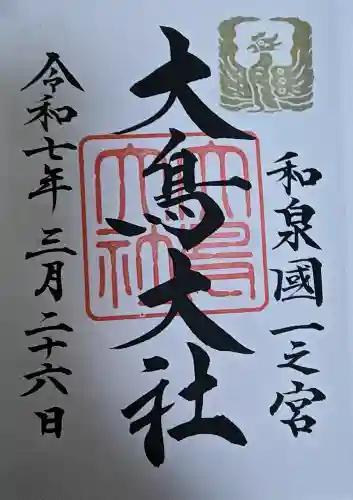 和泉國一之宮
大鳥大社
令和七年三月二十六日
大鳥大社